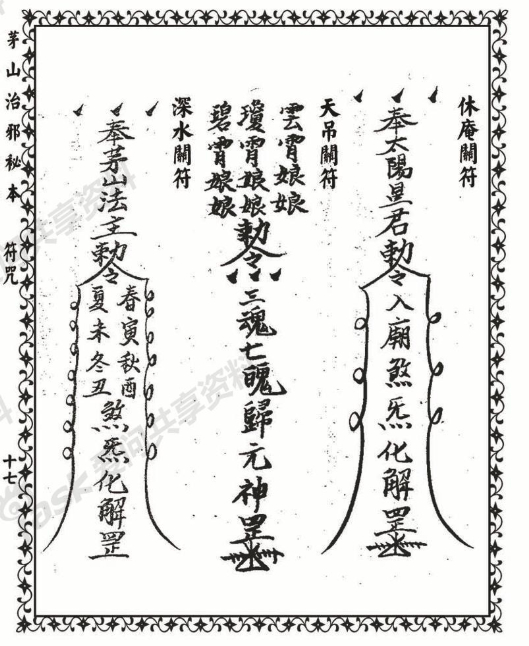 休庵關符
奉太陽星君勅令入廟煞炁化解罡
天吊關符
雲霄娘娘
瓊霄娘娘
碧霄娘娘
勅令三魂七魄歸元神罡
深水關符
奉茅山法主勅令
春寅秋酉
夏未冬丑
煞炁化解罡
茅山治邪秘本 符咒 十七